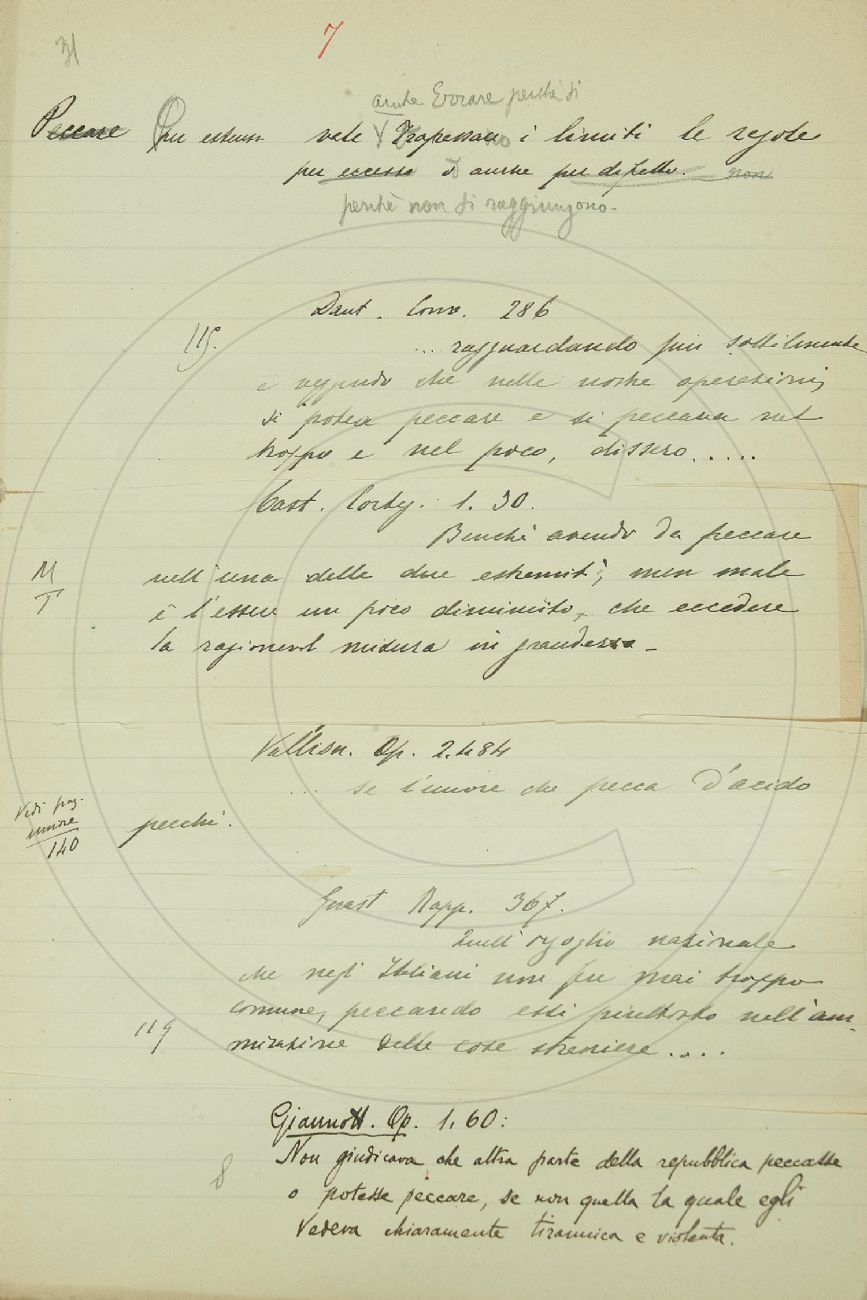 31
7
anche Errare perchè si
Peccare Per estens. vale Trapassano i limiti le regole
per eccesso o anche per difetto. non
perchè non si raggiungono.
Dant. Conv. 286
115.
... ragguardando più sottilmente
e veggendo che nelle nostre operazioni,
si potea peccare e si peccava nel
troppo e nel poco, dissero.....
Cast. Corteg. 1. 30.
Benchè avendo da peccare
M
T
nell'una delle due estremit', men male
è l'essere un poco diminuito, che eccedere
la ragionevol misura in grandezza.
Vallisn. Op. 2. 484
... se l'umore che pecca d'acido
Vedi pag.
umore
140
pecchi.
Guast Rapp. 367.
Quell'orgoglio nazionale
che negl'Italiani non fu mai troppo
comune, peccando essi piuttosto nell'am-
119
mirazione delle cose straniere....
Giannott. Op. 1. 60:
Non giudicava che altra parte della repubblica peccasse
8
o potesse peccare, se non quella la quale egli
vedeva chiaramente tirannica e violenta.